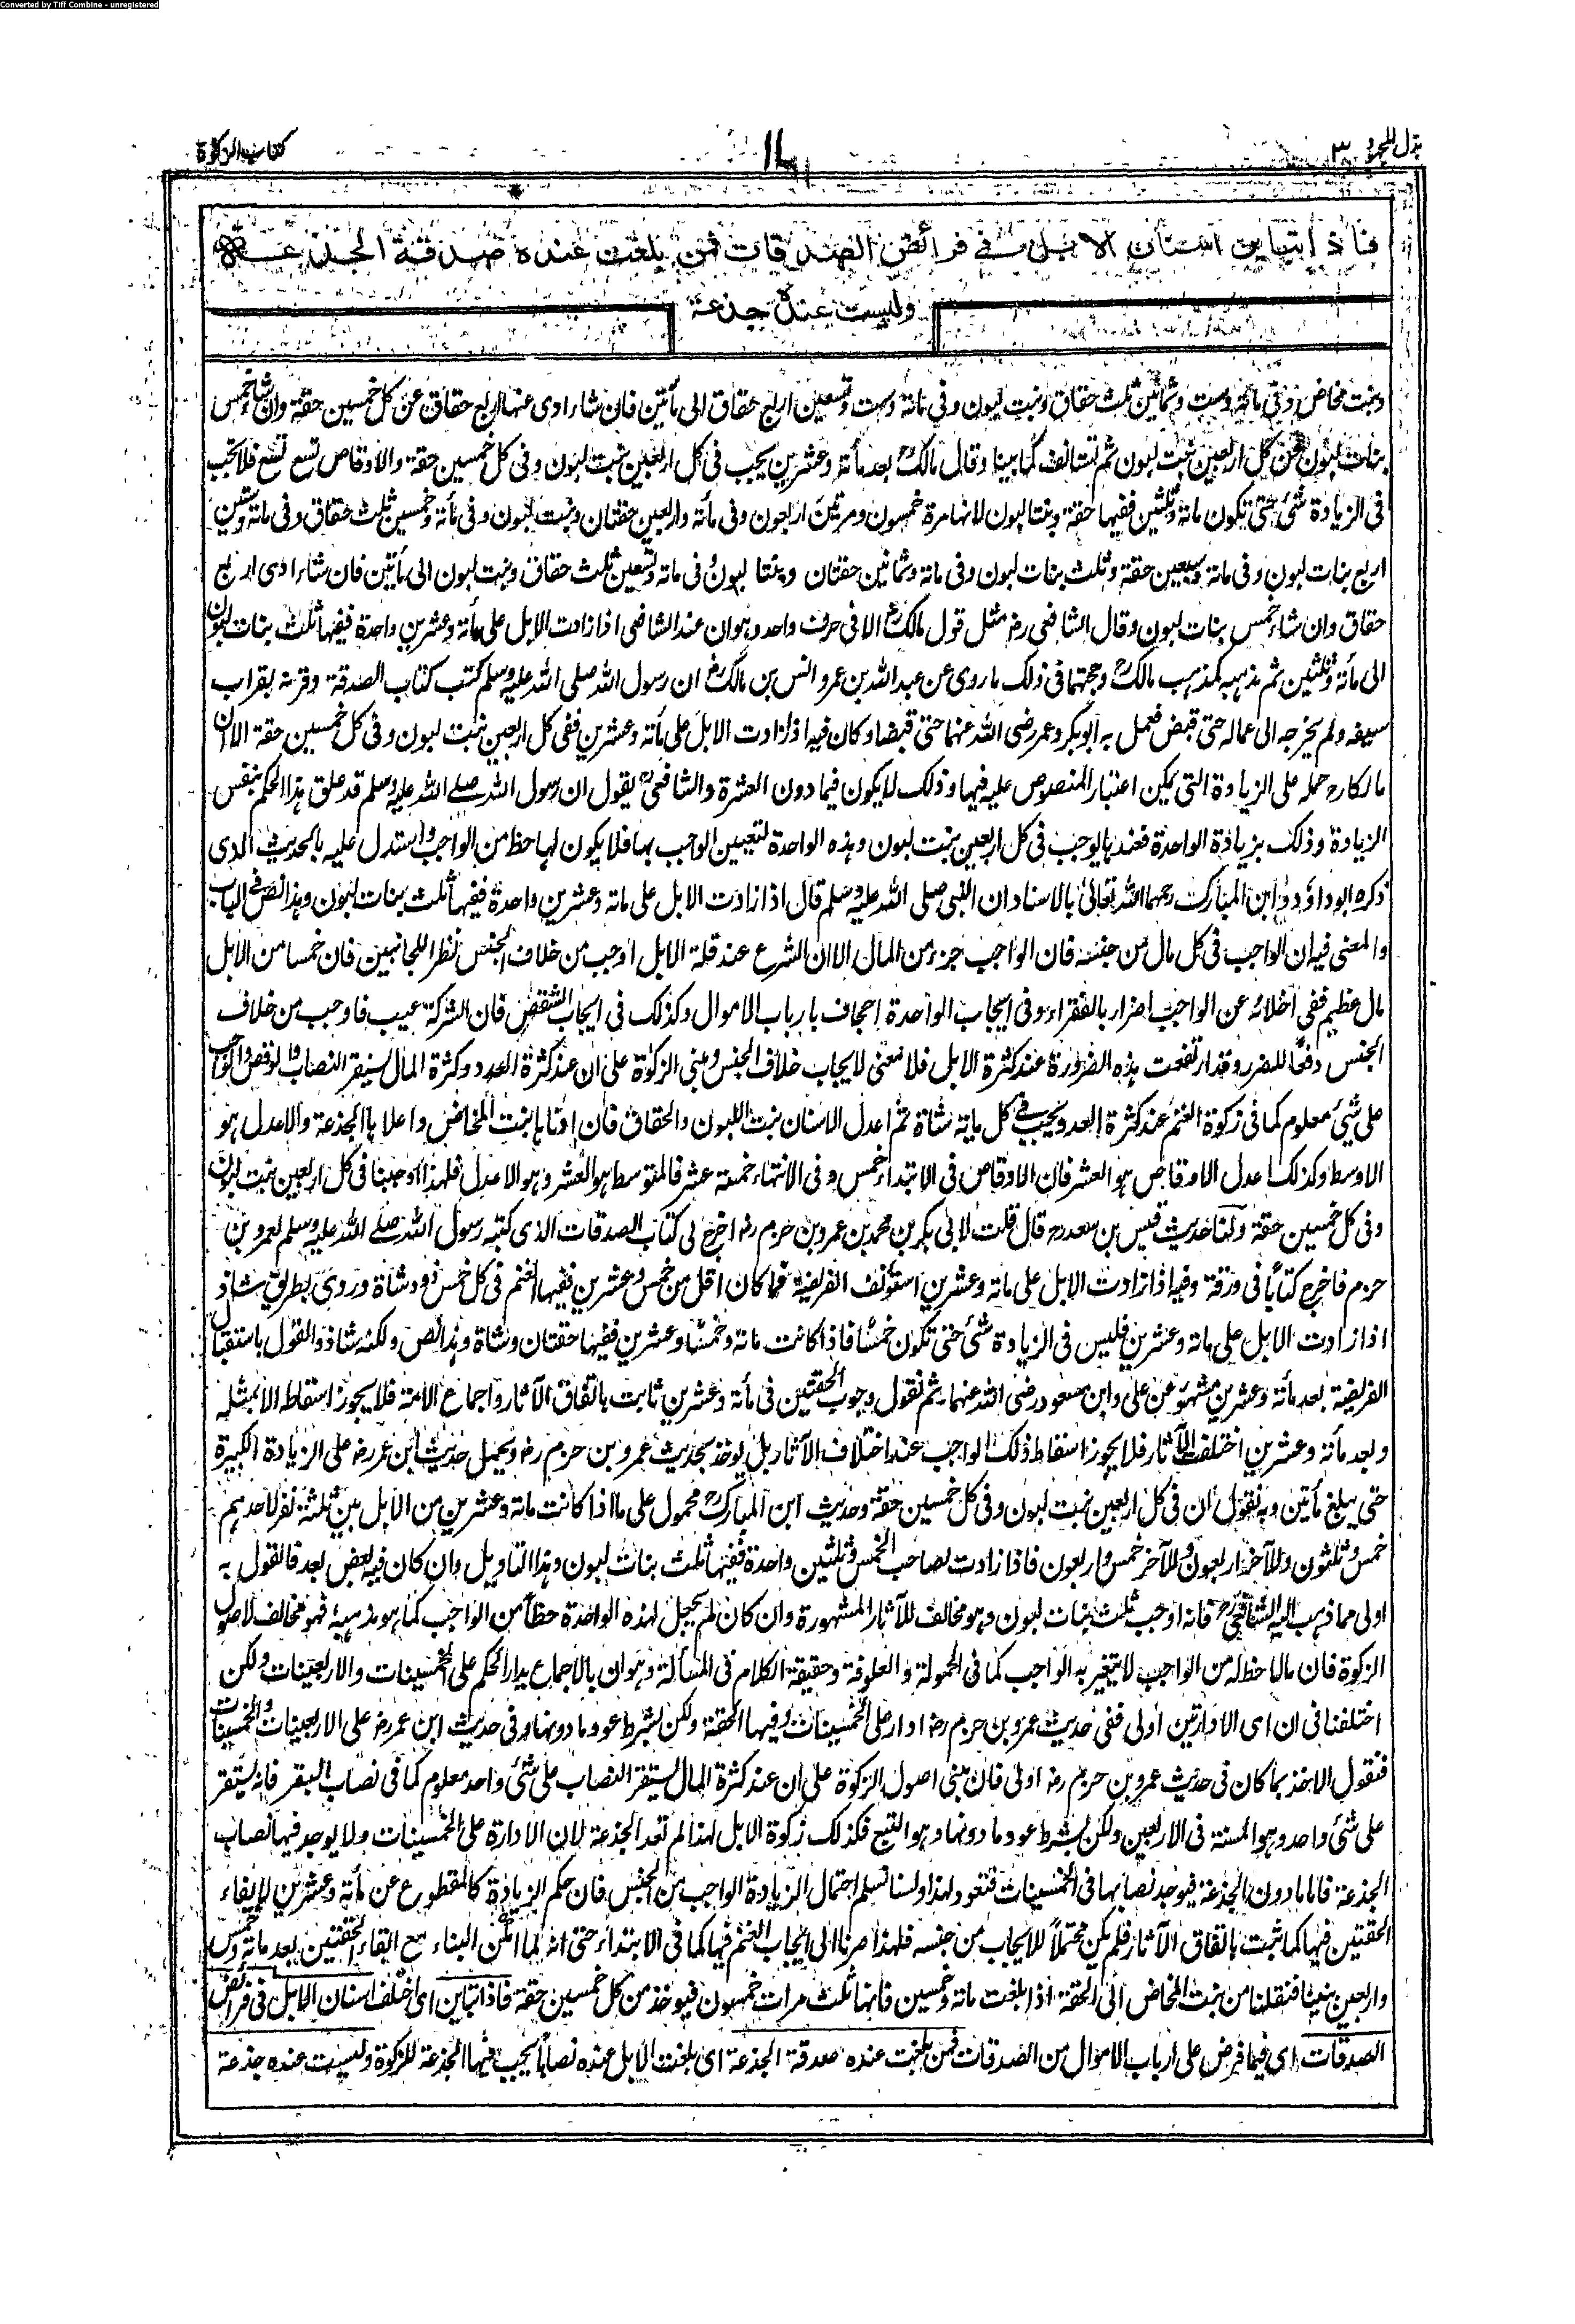 Converted by Tiff Combine - unregistered
بذل المجهود ٣
١٧
كتاب الزكوة
فاذا تباين اسنان الابل في فرائض الصدقات فمن بلغت عنده صدقة الجذعة
وليست عنده جذعة
وبنت مخاض وفي مائة وست وثمانين ثلث حقاق وبنت لبون وفي مائة وست وتسعين اربع حقاق الى مأتين فان شاء ادى عنها اربع حقاق عن كل خمسين حقة وان شاء خمس
بنات لبون عن كل اربعين بنت لبون ثم تستانف كما بينا وقال مالكؒ بعد مأته وعشرين يجب فى كل اربعين بنت لبون وفى كل خمسين حقة والاوقاص تسع تسع فلا تجب
فى الزيادة شئ حتى تكون مائة وثلثين ففيها حقة وبنتا لبون لانها مرة خمسون ومرتين اربعون وفى مأته واربعين حقتان وبنت لبون وفى مأته وخمسين ثلث حقاق وفى مائة وستين
اربع بنات لبون وفى مائة وسبعين حقة وثلث بنات لبون وفى مائة وثمانين حقتان وبنتا لبون وفى مائة وتسعين ثلث حقاق وبنت لبون الى مأتين فان شاء ادى اربع
حقاق وان شاء خمس بنات لبون وقال الشافعى رح مثل قول مالكؒ الا فى حرف واحد وهو ان عند الشافعى اذا زادت الابل على مأته وعشرين واحدة ففيها ثلث بنات لبون
الى مأته وثلثين ثم مذهبه كمذهب مالكؒ وحجتهما فى ذلك ما روى عن عبد الله بن عمر وانس بن مالكؓ ان رسول الله صلى الله عليه وسلم كتب كتاب الصدقة وقرنه بقراب
سيفه ولم يخرجه الى عماله حتى قبض فعمل به ابوبكر وعمر رضى الله عنهما حتى قبضا وكان فيه اذا زادت الابل على مأته وعشرين ففى كل اربعين بنت لبون وفى كل خمسين حقة الا ان
مالكا رح حمله على الزيادة التى يمكن اعتبار المنصوص عليه فيها وذلك لا يكون فيما دون العشرة والشافعىؒ يقول ان رسول الله صلے الله عليه وسلم قد علق هذا الحكم بنفس
الزيادة وذلك بزيادة الواحدة فعندها يوجب فى كل اربعين بنت لبون وهذه الواحدة لتعيين الواجب بها فلا يكون لها حظ من الواجب واستدل عليه بالحديث الذى
ذكره ابوداؤد وابن المبارك رحمهما الله تعالى بالاسناد ان النبى صلى الله عليه وسلم قال اذا زادت الابل على مائة وعشرين واحدة ففيها ثلث بنات لبون وهذا نص فى الباب
والمعنى فيه ان الواجب فى كل مال من جنسه فان الواجب جزء من المال الا ان الشرع عند قلة الابل اوجب من خلاف الجنس نظرا للجانبين فان خمسا من الابل
مال عظيم ففى اخلائه عن الواجب اضرار بالفقراء وفى ايجاب الواحدة اجحاف بارباب الاموال وكذلك فى ايجاب الشقص فان الشركة عيب فاوجب من خلاف
الجنس دفعا للضرر وقد ارتفعت هذه الضرورة عند كثرة الابل فلا معنى لايجاب خلاف الجنس ومبنى الزكوة على ان عند كثرة العدد وكثرة المال يستقر النصاب والوقص والواجب
على شئ معلوم كما فى زكوة الغنم عند كثرة العدد يجب فى كل مائة شاة ثم اعدل الاسنان بنت اللبون والحقاق فان ادناها بنت المخاض واعلاها الجذعة والاعدل هو
الاوسط وكذلك اعدل الاوقاص هو العشر فان الاوقاص فى الابتداء خمس وفى الانتهاء خمسة عشر فالمتوسط هو العشر وهو الاعدل فلهذا اوجبنا فى كل اربعين بنت لبون
وفى كل خمسين حقة ولنا حديث قيس بن سعد رح قال قلت لابى بكر بن محمد بن عمرو بن حزم رض اخرج لى كتاب الصدقات الذى كتبه رسول الله صلے الله عليه وسلم لعمرو بن
حزم فاخرج كتابا فى ورقة وفيه اذا زادت الابل على مائة وعشرين استونف الفريضة فما كان اقل من خمس وعشرين ففيها الغنم فى كل خمس ذود شاة وروى بطريق شاذ
اذا زادت الابل على مائة وعشرين فليس فى الزيادة شئ حتى تكون خمسا فاذا كانت مائة وخمسا وعشرين ففيها حقتان وشاة وهذا نص ولكنه شاذ والقول باستقبال
الفريضة بعد مأته وعشرين مشهور عن على وابن مسعود رضى الله عنهما ثم نقول وجوب الحقتين فى مأته وعشرين ثابت باتفاق الآثار واجماع الامة فلا يجوز اسقاط الا بمثله
وبعد مأته وعشرين اختلفت الآثار فلا يجوز اسقاط ذلك الواجب عند اختلاف الآثار بل يوخذ بحديث عمرو بن حزم رض ويحمل حديث ابن عمر رض على الزيادة الكبيرة
حتى يبلغ مأتين وبه نقول ان فى كل اربعين بنت لبون وفى كل خمسين حقة وحديث ابن المباركؒ محمول على ما اذا كانت مائة وعشرين من الابل بين ثلثة نفر لاحدهم
خمس وثلثون وللآخر اربعون وللآخر خمس واربعون فاذا زادت لصاحب الخمس وثلثين واحدة ففيها ثلث بنات لبون وهذا التاويل وان كان فيه بعض بعد فالقول به
اولى مما ذهب اليه الشافعىؒ فانه اوجب ثلث بنات لبون وهو مخالف للآثار المشهورة وان كان لم يجعل لهذه الواحدة حظا من الواجب كما هو مذهبه فهو مخالف لاصول
الزكوة فان مالا حظ له من الواجب لا يتغير به الواجب كما فى الحمولة والعلوفة وحقيقة الكلام فى المسألة وهو ان بالاجماع يدار الحكم على الخمسينات والاربعينات ولكن
اختلفنا فى ان اى الادارتين اولى ففى حديث عمرو بن حزم رض ادار على الخمسينات وفيها الحقة ولكن بشرط عود ما دونها وفى حديث ابن عمر رض على الاربعينات والخمسينات
فنقول الاخذ بما كان فى حديث عمرو بن حزم رض اولى فان مبنى اصول الزكوة على ان عند كثرة المال يستقر النصاب على شئ واحد معلوم كما فى نصاب البقر فانه يستقر
على شئ واحد وهو المسنة فى الاربعين ولكن بشرط عود ما دونها وهو التبيع فكذلك زكوة الابل لهذا لم تعد الجذعة لان الادارة على الخمسينات ولا يوجد فيها نصاب
الجذعة فاما ما دون الجذعة فيوجد نصابها فى الخمسينات فتعود لهذا ولسنا نسلم احتمال الزيادة الواجب من الجنس فان حكم الزيادة كالمقطوع عن مأته وعشرين لايفاء
الحقتين فيها كما ثبت باتفاق الآثار فلم يكن محتملا للايجاب من جنسه فلهذا صرنا الى ايجاب الغنم فيها كما فى الابتداء حتى انه لما امكن البناء مع ابقاء الحقتين بعد مائة وخمس
واربعين بنينا فنقلنا من بنت المخاض الى الحقة اذا بلغت مائة وخمسين فانها ثلث مرات خمسون فيوخذ من كل خمسين حقة فاذا تباين اى اختلف اسنان الابل فى فرائض
الصدقات اى فيما فرض على ارباب الاموال من الصدقات فمن بلغت عنده صدقة الجذعة اى بلغت الابل عنده نصابا يجب فيها الجذعة للزكوة وليست عنده جذعة